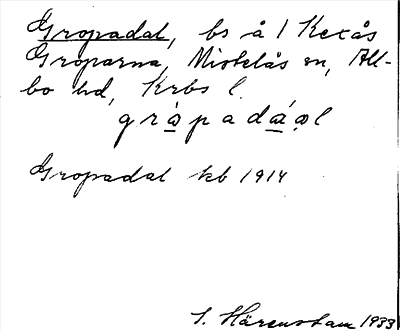 Gropadal, bs å 1 Kexås
Groparna, Mistelås sn, All-
bo hd, Krbs l.
gròpadáạl
Gropadal kb 1914
S. Härenstam 1933